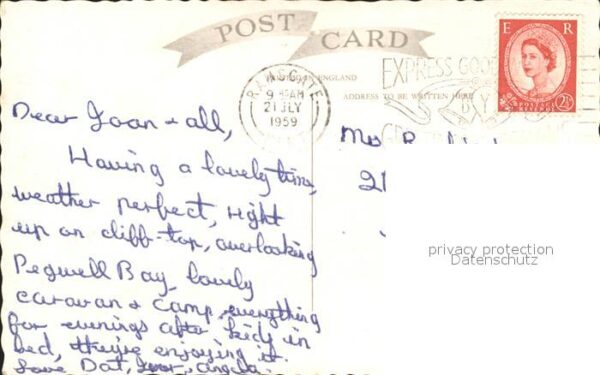 POST CARD
PRINTED IN ENGLAND
ADDRESS TO BE WRITTEN HERE
RAMSGATE
9 AM
21 JLY
1959
EXPRESS GOOD
BY
E R
POSTAGE
2½
Dear Joan & all,
Having a lovely time,
weather perfect, right
up on cliff-top, overlooking
Pegwell Bay, lovely
caravan & camp, everything
for evenings after kids in
bed, they're enjoying it.
Love Dat, Angela.
Mrs
21
privacy protection
Datenschutz